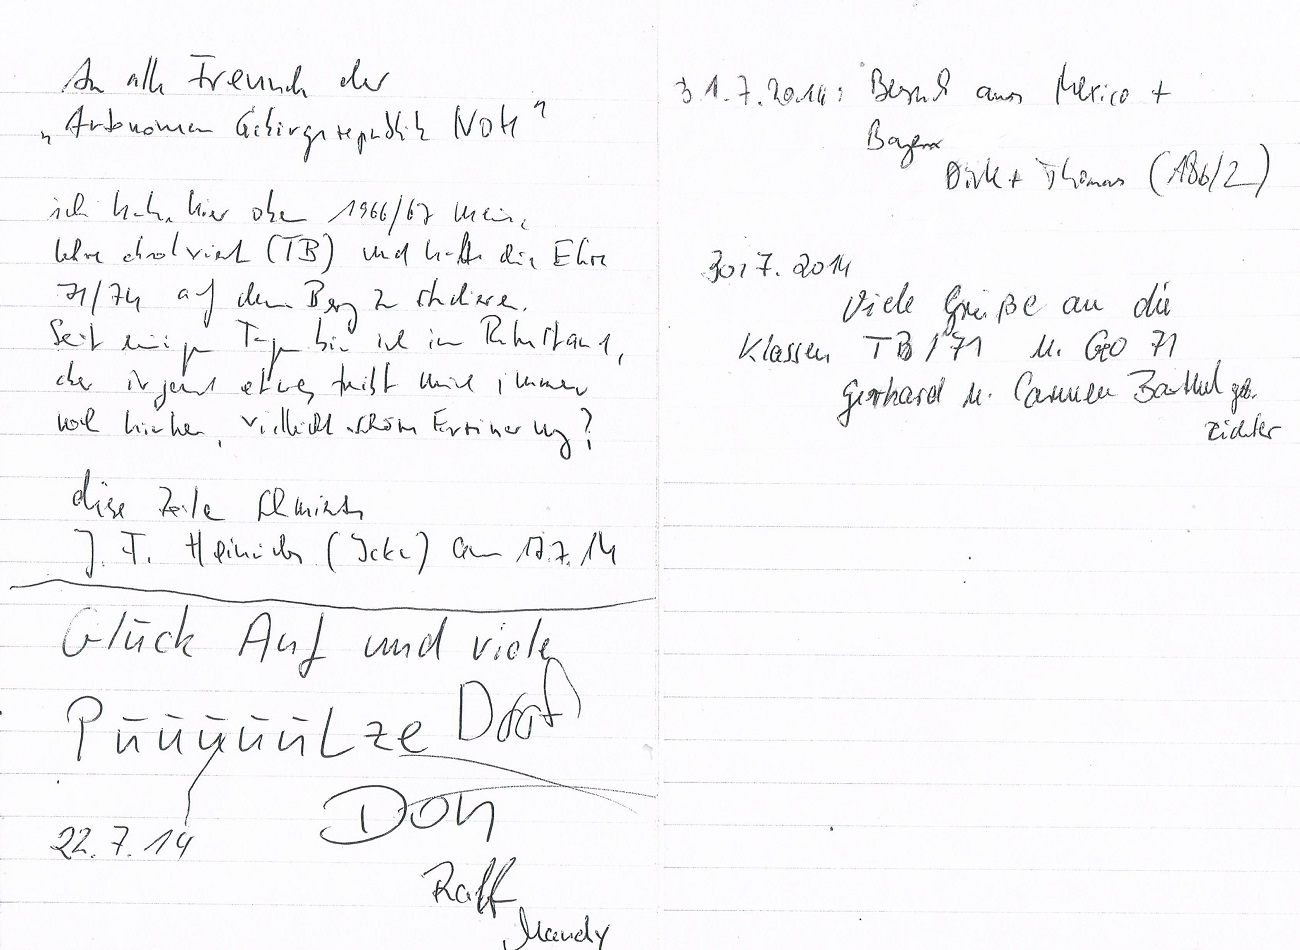 An alle Freunde der
„Autonomen Gebirgsrepublik Noth"
ich habe hier oben 1966/67 meine
Lehre absolviert (TB) und hatte die Ehre
71/74 auf dem Berg zu studieren.
Seit einigen Tagen bin ich im Ruhestand,
aber irgend etwas treibt mich immer
noch hierher, vielleicht schöne Erinnerung?
diese Zeile
J. F. Heinichen ( ) am 17.7.14
Glück Auf und viele
Püüüüütze Doof
DON
22.7.14
Ralf
Mandy
31.7.2014: Besuch aus Mexico +
Bayern
Dirk + Thomas (186/2)
30.7.2014
Viele Grüße an die
Klassen TB/71 u. GEO 71
Gerhard u. Carmen Barthel geb.
Richter